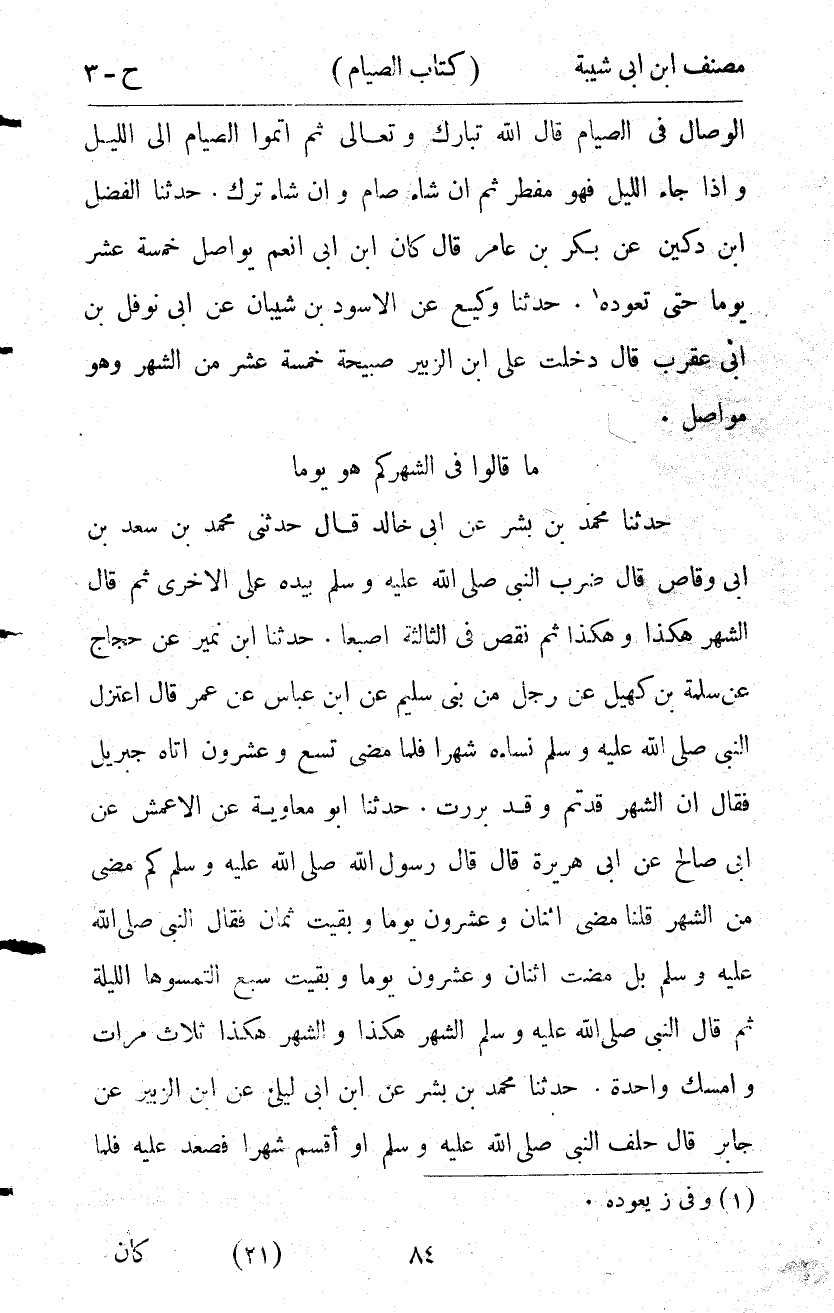 مصنف ابن ابى شيبة ( كتاب الصيام ) ح - ٣
الوصال فى الصيام قال الله تبارك و تعـالى ثم اتموا الصيام الى الليـل
و اذا جاء الليل فهو مفطر ثم ان شاء صام و ان شاء ترك . حدثنا الفضل
ابن دكين عن بكر بن عامر قال كان ابن ابى انعم يواصل خمسة عشر
يوما حتى تعوده١ . حدثنا وكيع عن الاسود بن شيبان عن ابى نوفل بن
ابى عقرب قال دخلت على ابن الزبير صبيحة خمسة عشر من الشهر وهو
مواصل .
ما قالوا فى الشهركم هو يوما
حدثنا محمد بن بشر عن ابى خالد قـال حدثنى محمد بن سعد بن
ابى وقاص قال ضرب النبى صلى الله عليه و سلم بيده على الاخرى ثم قال
الشهر هكذا و هكذا ثم نقص فى الثالثة اصبعا . حدثنا ابن نمير عن حجاج
عن سلمة بن كهيل عن رجل من بنى سليم عن ابن عباس عن عمر قال اعتزل
النبى صلى الله عليه و سلم نساءه شهرا فلما مضى تسع و عشرون اتاه جبريل
فقال ان الشهر قدتم و قـد بررت . حدثنا ابو معاويـة عن الاعمش عن
ابى صالح عن ابى هريرة قال قال رسول الله صلى الله عليه و سلم كم مضى
من الشهر قلنا مضى اثنان و عشرون يوما و بقيت ثمان فقال النبى صلى الله
عليه و سلم بل مضت اثنان و عشرون يوما و بقيت سبع التمسوها الليلة
ثم قال النبى صلى الله عليه و سلم الشهر هكذا و الشهر هكذا ثلاث مرات
و امسك واحدة . حدثنا محمد بن بشر عن ابن ابى ليلى عن ابن الزبير عن
جابر قال حلف النبى صلى الله عليه و سلم او أقسم شهرا فصعد عليه فلما
(١) و فى ز يعوده .
٨٤ (٢١) كان